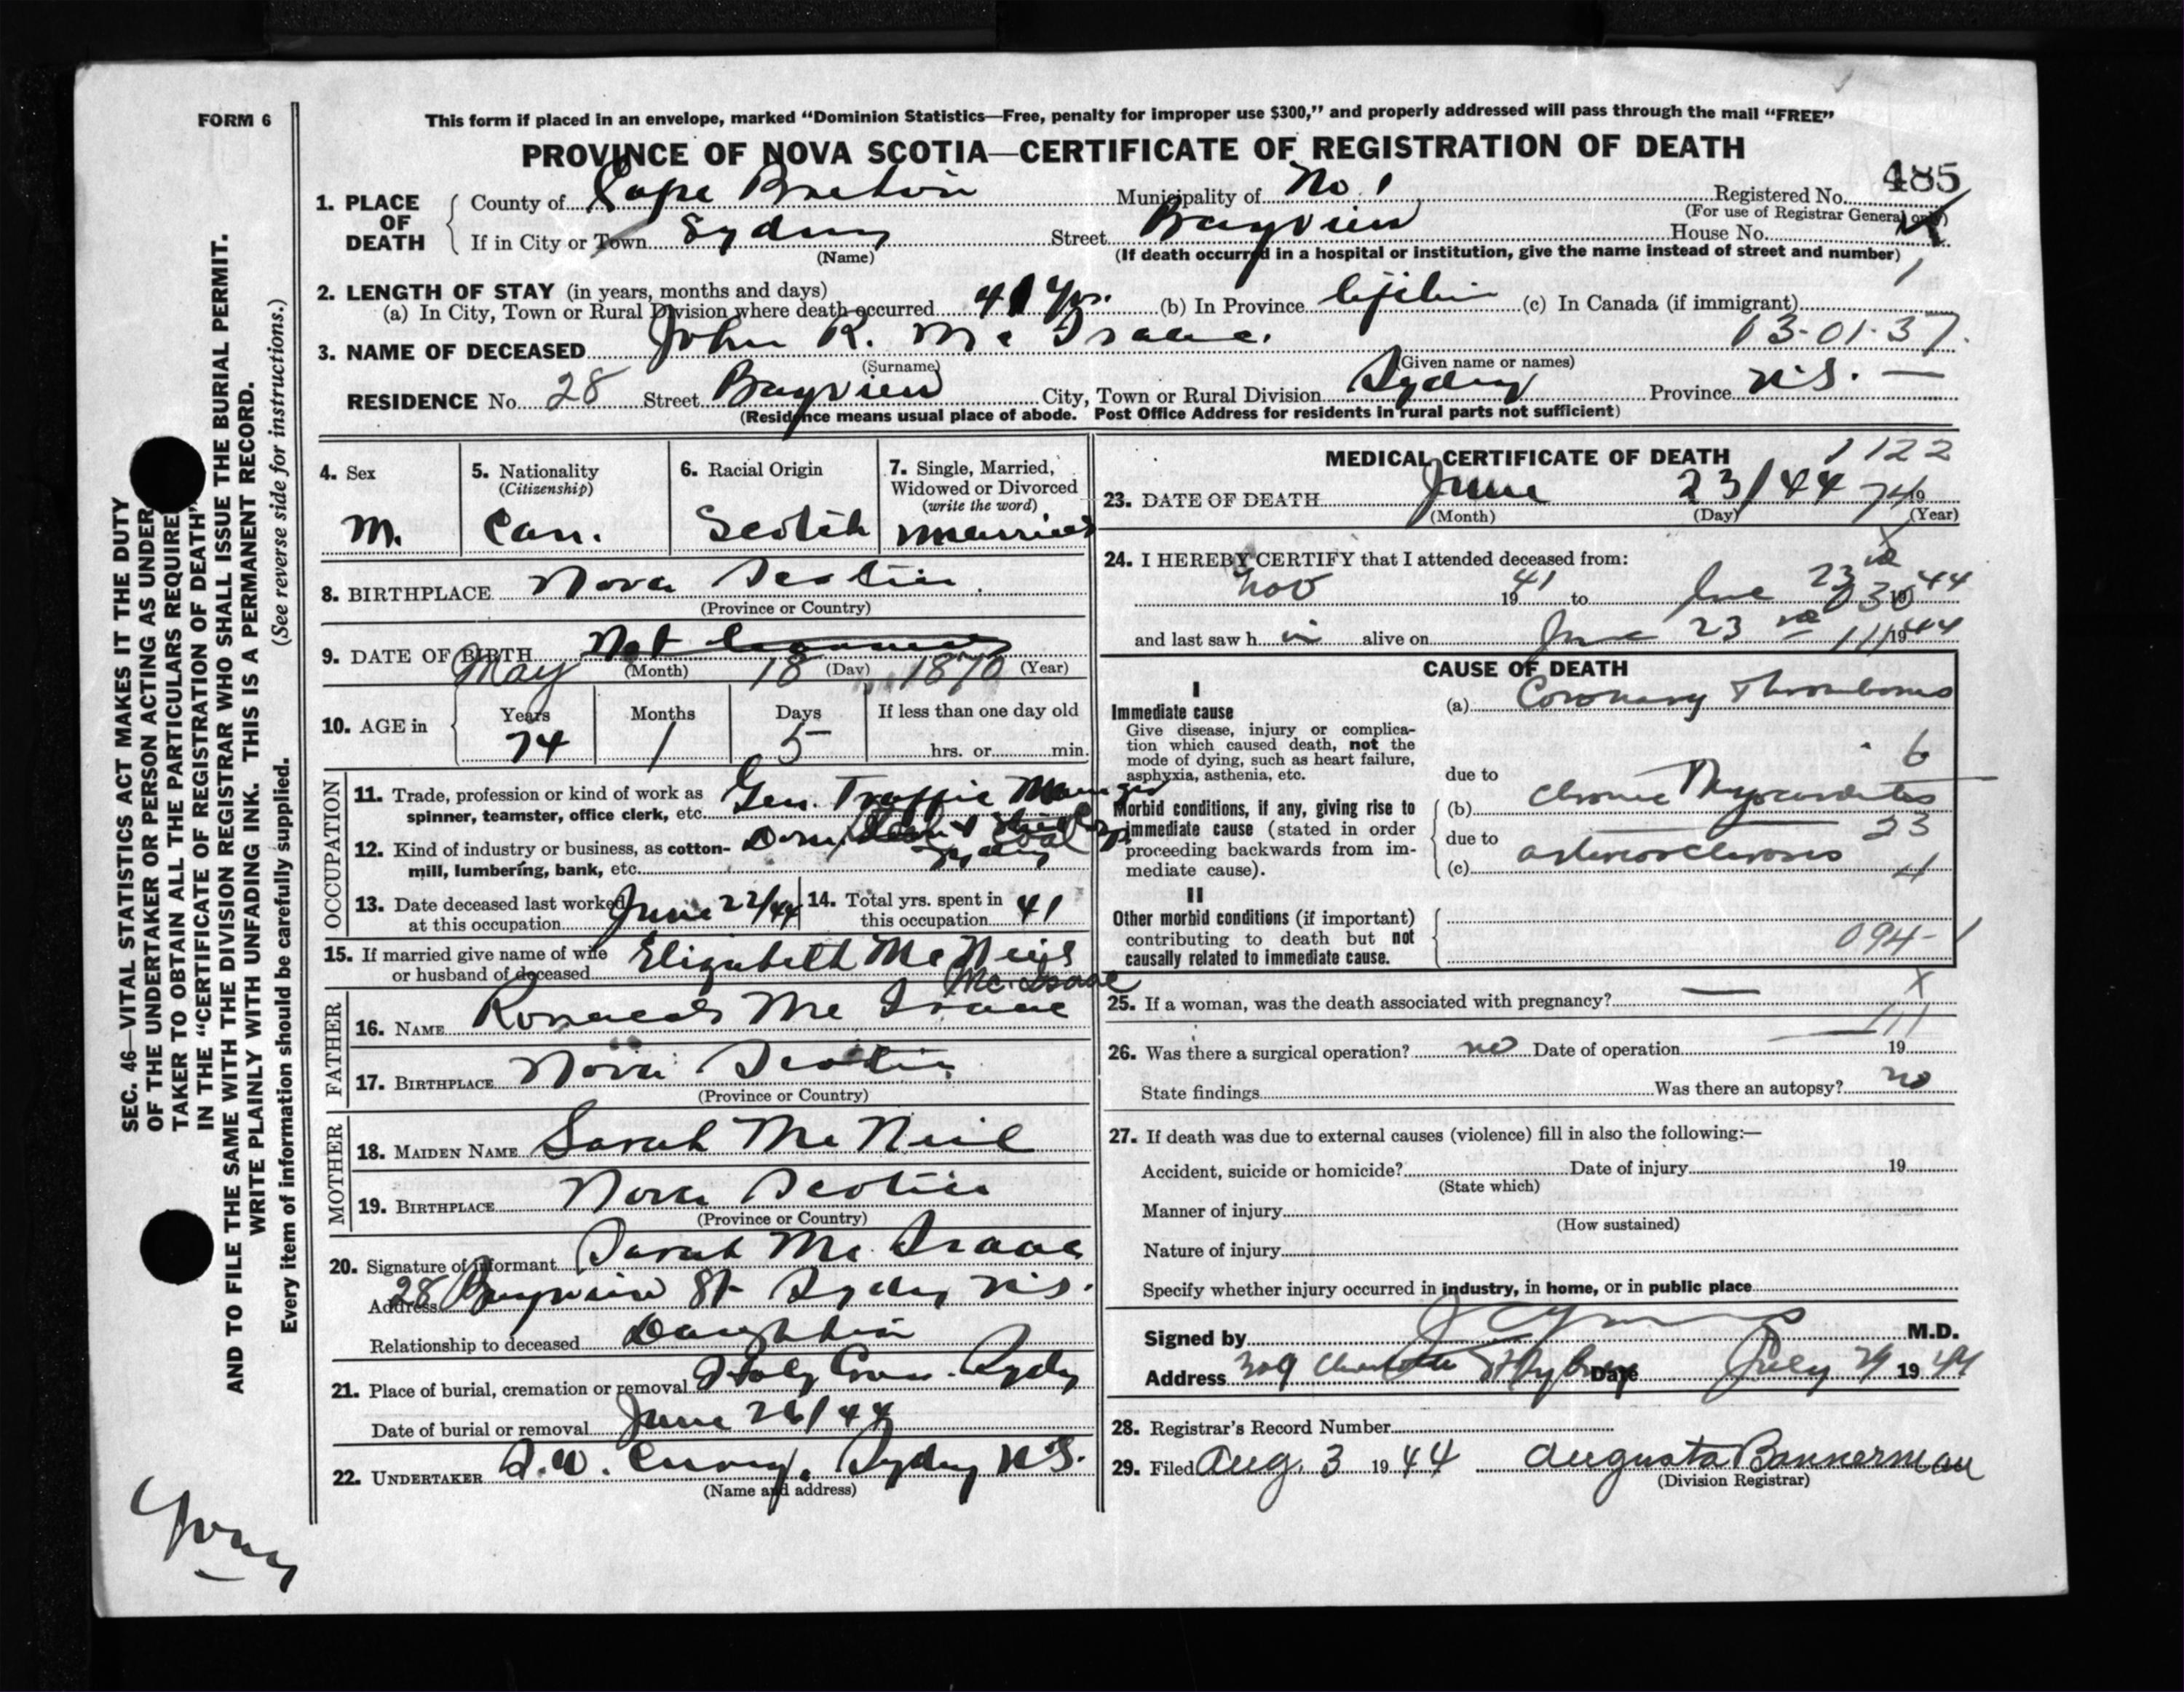 FORM 6
This form if placed in an envelope, marked “Dominion Statistics—Free, penalty for improper use $300,” and properly addressed will pass through the mail “FREE”
PROVINCE OF NOVA SCOTIA—CERTIFICATE OF REGISTRATION OF DEATH
485
1. PLACE OF DEATH
County of Cape Breton Municipality of No. 1 Registered No.
(For use of Registrar General only)
If in City or Town Sydney Street Bayview House No.
(Name) (If death occurred in a hospital or institution, give the name instead of street and number)
2. LENGTH OF STAY (in years, months and days)
(a) In City, Town or Rural Division where death occurred 41 yrs. (b) In Province lifetime (c) In Canada (if immigrant)
3. NAME OF DECEASED John R. Mc Isaac. 03-01-37.
(Surname) (Given name or names)
RESIDENCE No. 28 Street Bayview City, Town or Rural Division Sydney Province N.S. —
(Residence means usual place of abode. Post Office Address for residents in rural parts not sufficient)
4. Sex M.
5. Nationality (Citizenship) Can.
6. Racial Origin Scotch
7. Single, Married, Widowed or Divorced (write the word) Married
8. BIRTHPLACE Nova Scotia
(Province or Country)
9. DATE OF BIRTH Not
May 18 1870
(Month) (Day) (Year)
10. AGE in Years 74 Months 1 Days 5 If less than one day old
hrs. or min.
OCCUPATION
11. Trade, profession or kind of work as spinner, teamster, office clerk, etc. Gen. Traffic Manager
12. Kind of industry or business, as cotton-mill, lumbering, bank, etc. Dom. Steel & Coal Corp. Sydney
13. Date deceased last worked at this occupation June 22/44
14. Total yrs. spent in this occupation 41
15. If married give name of wife or husband of deceased Elizabeth McNeil
Mc.Isaac
FATHER
16. NAME Ronald Mc Isaac
17. BIRTHPLACE Nova Scotia
(Province or Country)
MOTHER
18. MAIDEN NAME Sarah Mc Neil
19. BIRTHPLACE Nova Scotia
(Province or Country)
20. Signature of informant Sarah Mc Isaac
Address 28 Bayview St Sydney N.S.
Relationship to deceased Daughter
21. Place of burial, cremation or removal Holy Cross. Sydney
Date of burial or removal June 26/44
22. UNDERTAKER Sydney N.S.
(Name and address)
MEDICAL CERTIFICATE OF DEATH 1122
23. DATE OF DEATH June 23/44 74 19
(Month) (Day) (Year)
24. I HEREBY CERTIFY that I attended deceased from:
Nov 1941 to June 23 1944
and last saw h im alive on June 23 1944
CAUSE OF DEATH
I
Immediate cause
Give disease, injury or complication which caused death, not the mode of dying, such as heart failure, asphyxia, asthenia, etc.
(a) Coronary Thrombosis
6
due to
Morbid conditions, if any, giving rise to immediate cause (stated in order proceeding backwards from immediate cause).
(b) Chronic Myocarditis
due to 23
(c) arteriosclerosis
II
Other morbid conditions (if important) contributing to death but not causally related to immediate cause.
094-1
25. If a woman, was the death associated with pregnancy? — X
26. Was there a surgical operation? no Date of operation 19
State findings Was there an autopsy? no
27. If death was due to external causes (violence) fill in also the following:—
Accident, suicide or homicide? Date of injury 19
(State which)
Manner of injury
(How sustained)
Nature of injury
Specify whether injury occurred in industry, in home, or in public place
Signed by M.D.
Address 309 Charlotte St Sydney Date July 29 1944
28. Registrar's Record Number
29. Filed Aug. 3 1944 Augusta Bannerman
(Division Registrar)
SEC. 46—VITAL STATISTICS ACT MAKES IT THE DUTY
OF THE UNDERTAKER OR PERSON ACTING AS UNDER
TAKER TO OBTAIN ALL THE PARTICULARS REQUIRE
IN THE “CERTIFICATE OF REGISTRATION OF DEATH”
AND TO FILE THE SAME WITH THE DIVISION REGISTRAR WHO SHALL ISSUE THE BURIAL PERMIT.
WRITE PLAINLY WITH UNFADING INK. THIS IS A PERMANENT RECORD.
Every item of information should be carefully supplied. (See reverse side for instructions.)